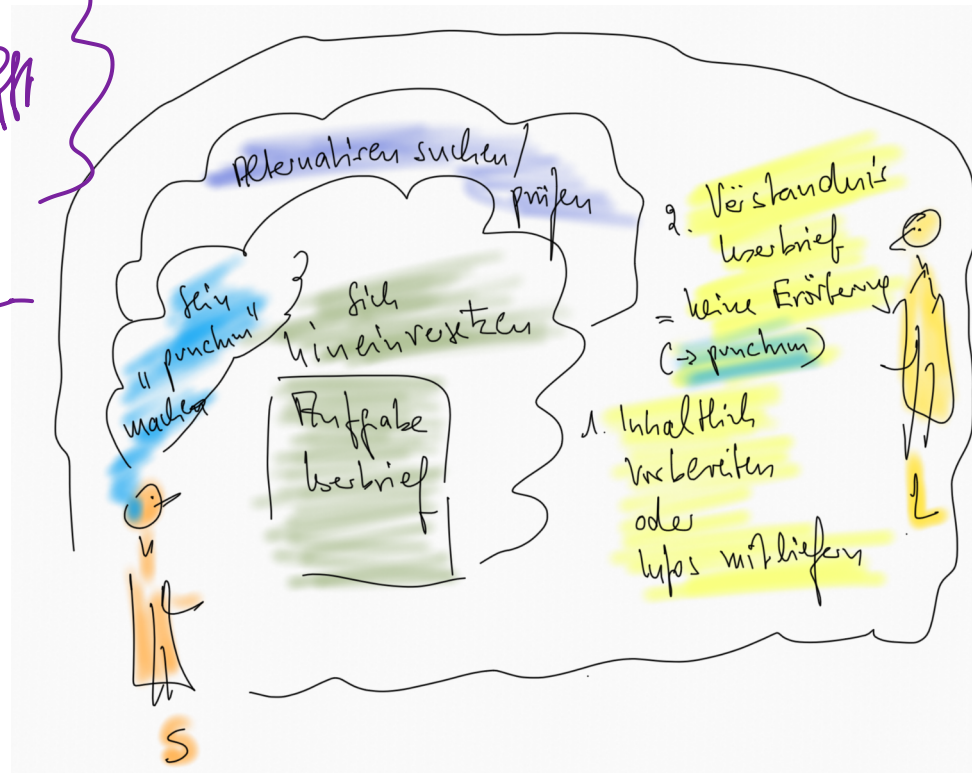 Alternativen suchen /
prüfen
sein
"punctum"
machen
sich
hineinversetzen
Aufgabe
Leserbrief
2. Verständnis
Leserbrief
= keine Erörterung
(→ punctum)
1. Inhaltlich
vorbereiten
oder
Infos mitliefern
S
L